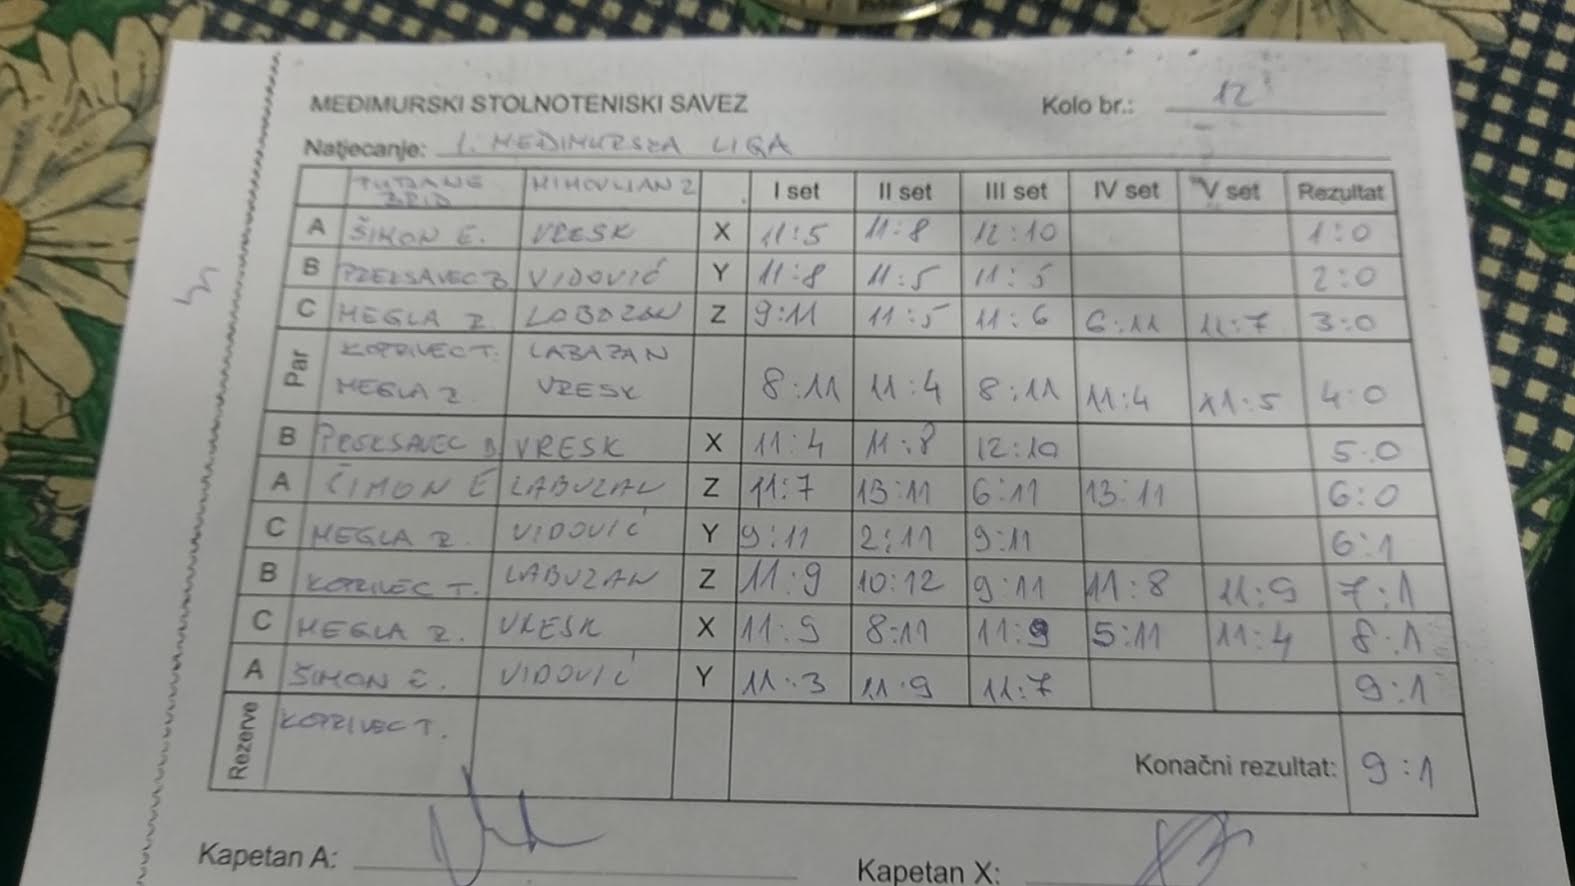 MEĐIMURSKI STOLNOTENISKI SAVEZ Kolo br.: 12
Natjecanje: 1. MEĐIMURSKA LIGA
MIHOVLJAN 2 I set II set III set IV set V set Rezultat
A ŠIMON E. VRESK X 11:5 11:8 12:10 1:0
B VIDOVIĆ Y 11:8 11:5 11:5 2:0
C MEGLA Z. Z 9:11 11:5 11:6 6:11 11:7 3:0
Par KOPRIVEC T. LABAZAN
MEGLA Z. VRESK 8:11 11:4 8:11 11:4 11:5 4:0
B VRESK X 11:4 11:8 12:10 5:0
A ŠIMON E LABUZAN Z 11:7 13:11 6:11 13:11 6:0
C MEGLA Z. VIDOVIĆ Y 9:11 2:11 9:11 6:1
B KOPRIVEC T. LABUZAN Z 11:9 10:12 9:11 11:8 11:9 7:1
C MEGLA Z. VRESK X 11:9 8:11 11:9 5:11 11:4 8:1
A ŠIMON E. VIDOVIĆ Y 11:3 11:9 11:7 9:1
Rezerve KOPRIVEC T.
Konačni rezultat: 9:1
Kapetan A: Kapetan X: